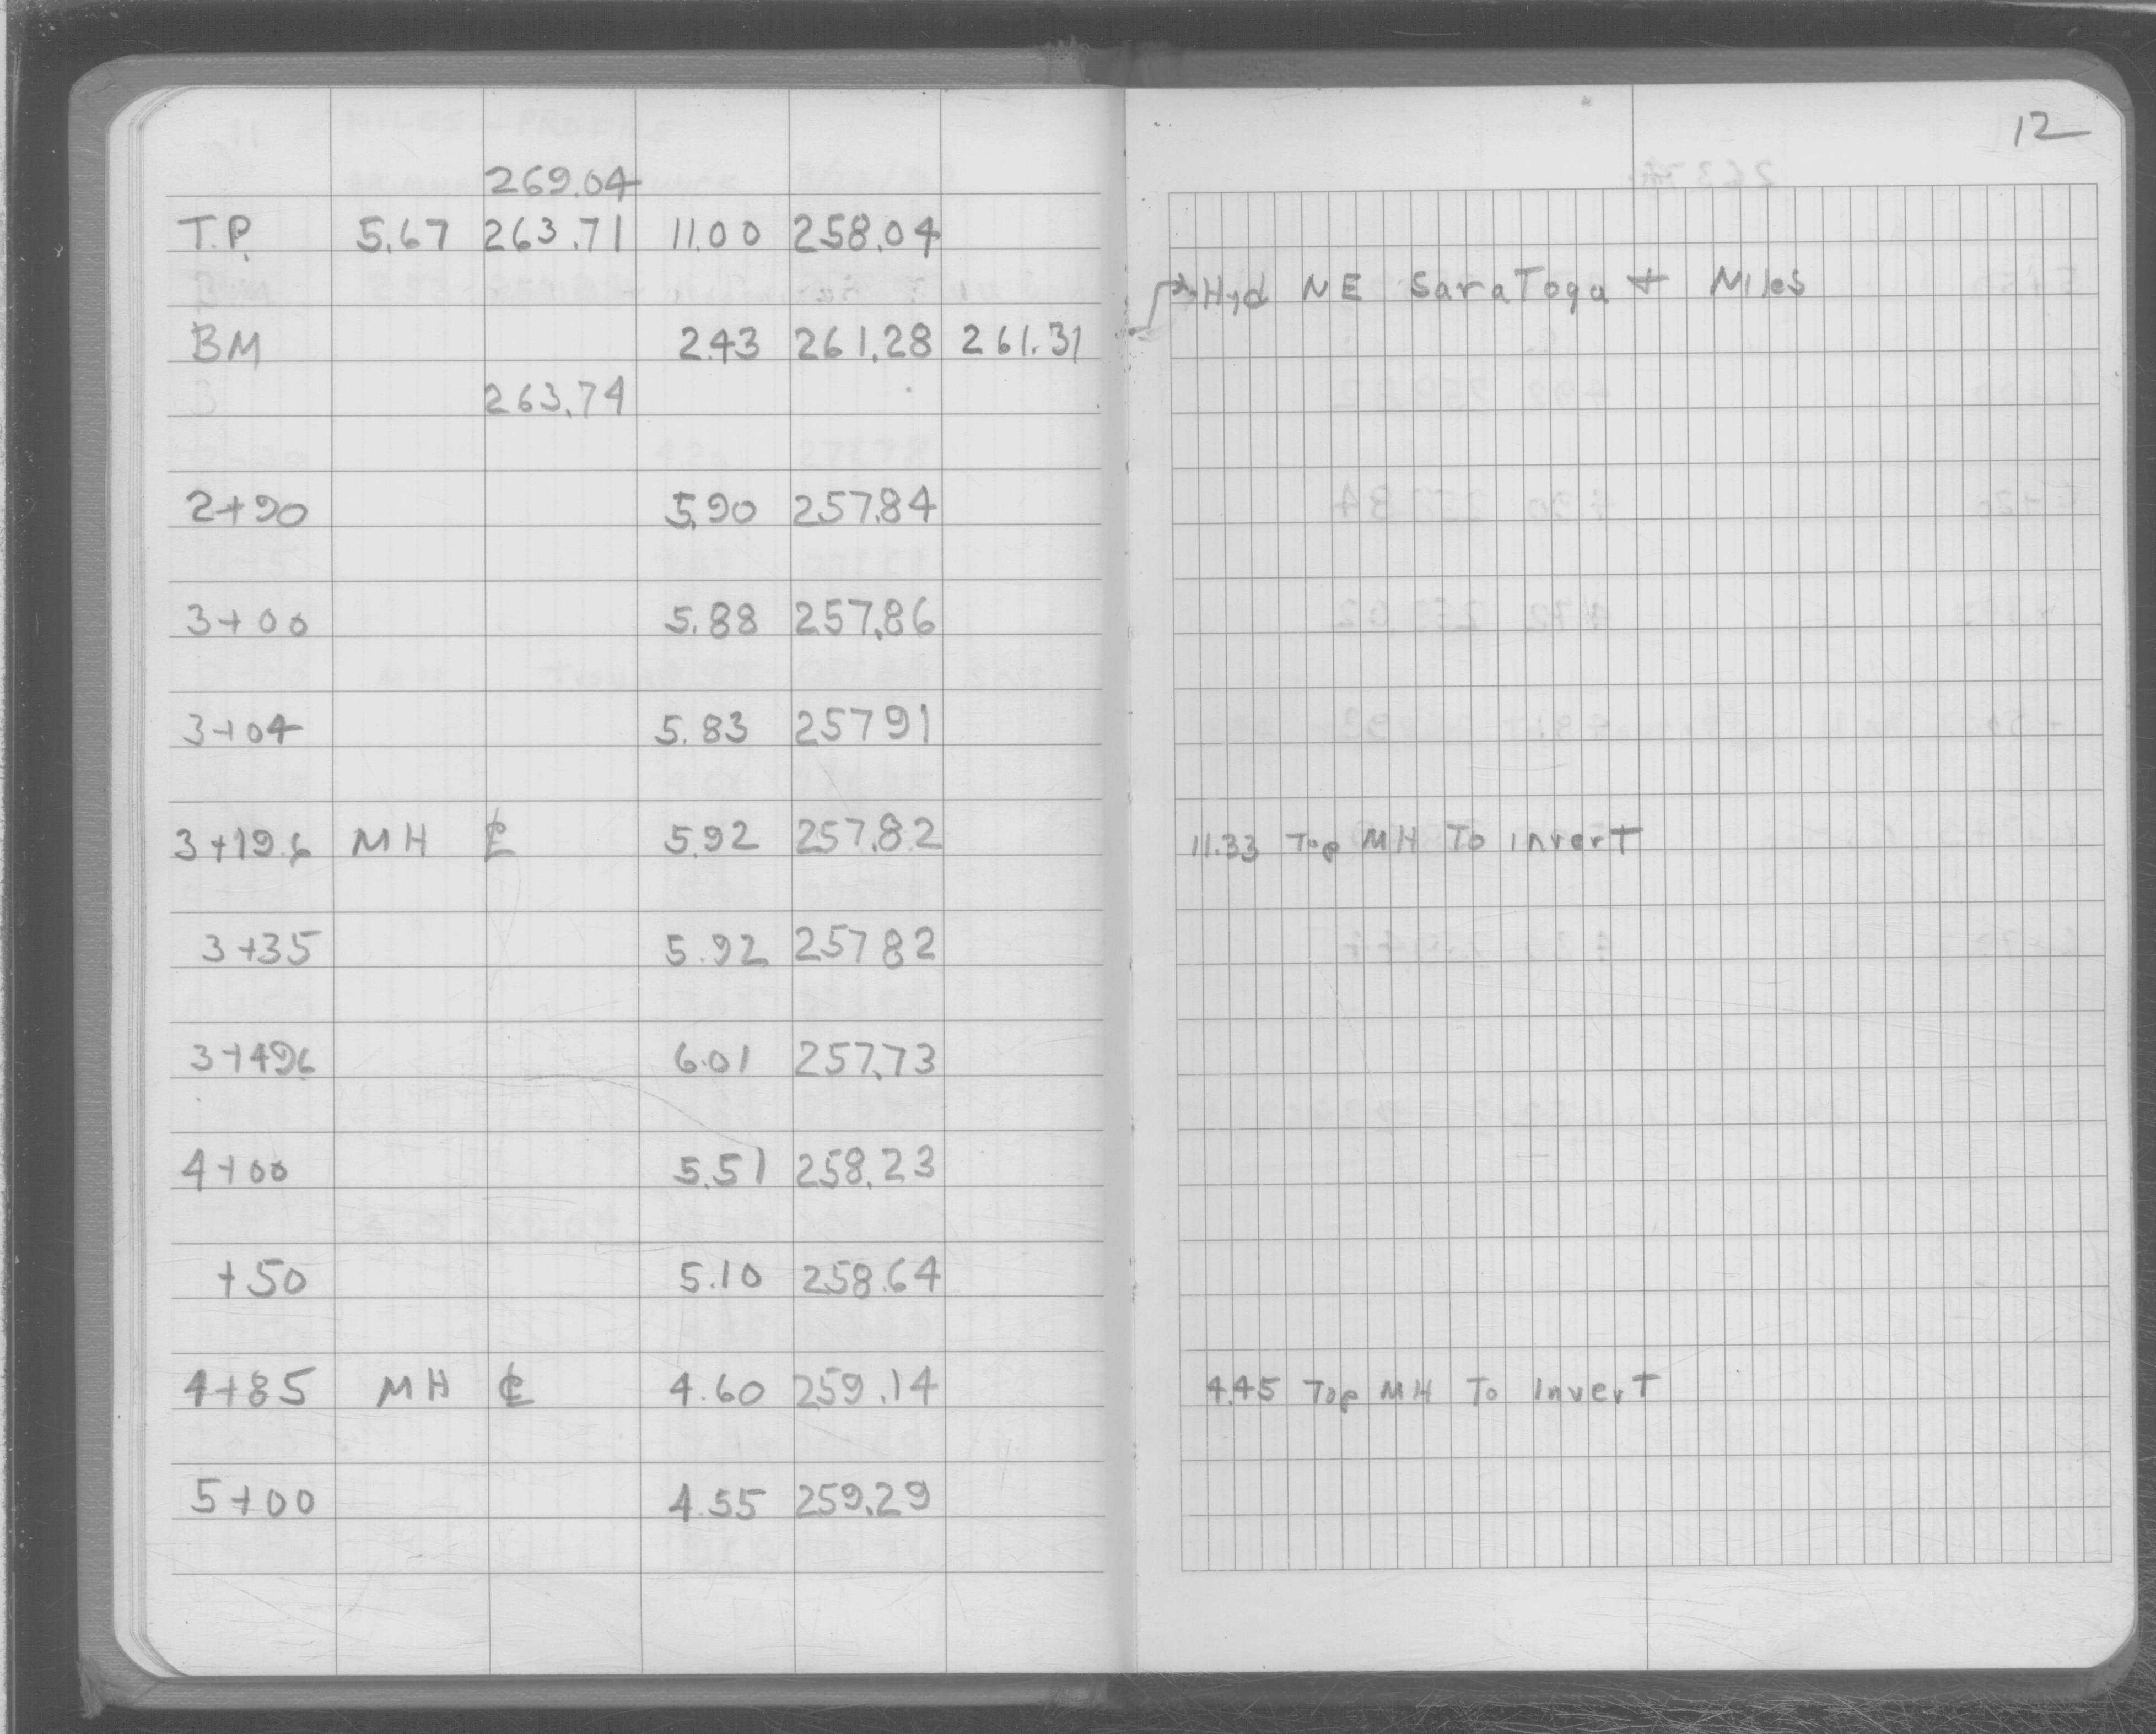 12
269.04
T.P. 5.67 263.71 11.00 258.04
Hyd NE SaraToga + Miles
BM 2.43 261.28 261.31
263.74
2+90 5.90 257.84
3+00 5.88 257.86
3+04 5.83 257 91
3+19.6 MH ℄ 5.92 257.82 11.33 Top MH To Invert
3+35 5.92 257 82
3+496 6.01 257.73
4+00 5.51 258.23
+50 5.10 258.64
4+85 MH ℄ 4.60 259.14 4.45 Top MH To Invert
5+00 4.55 259.29